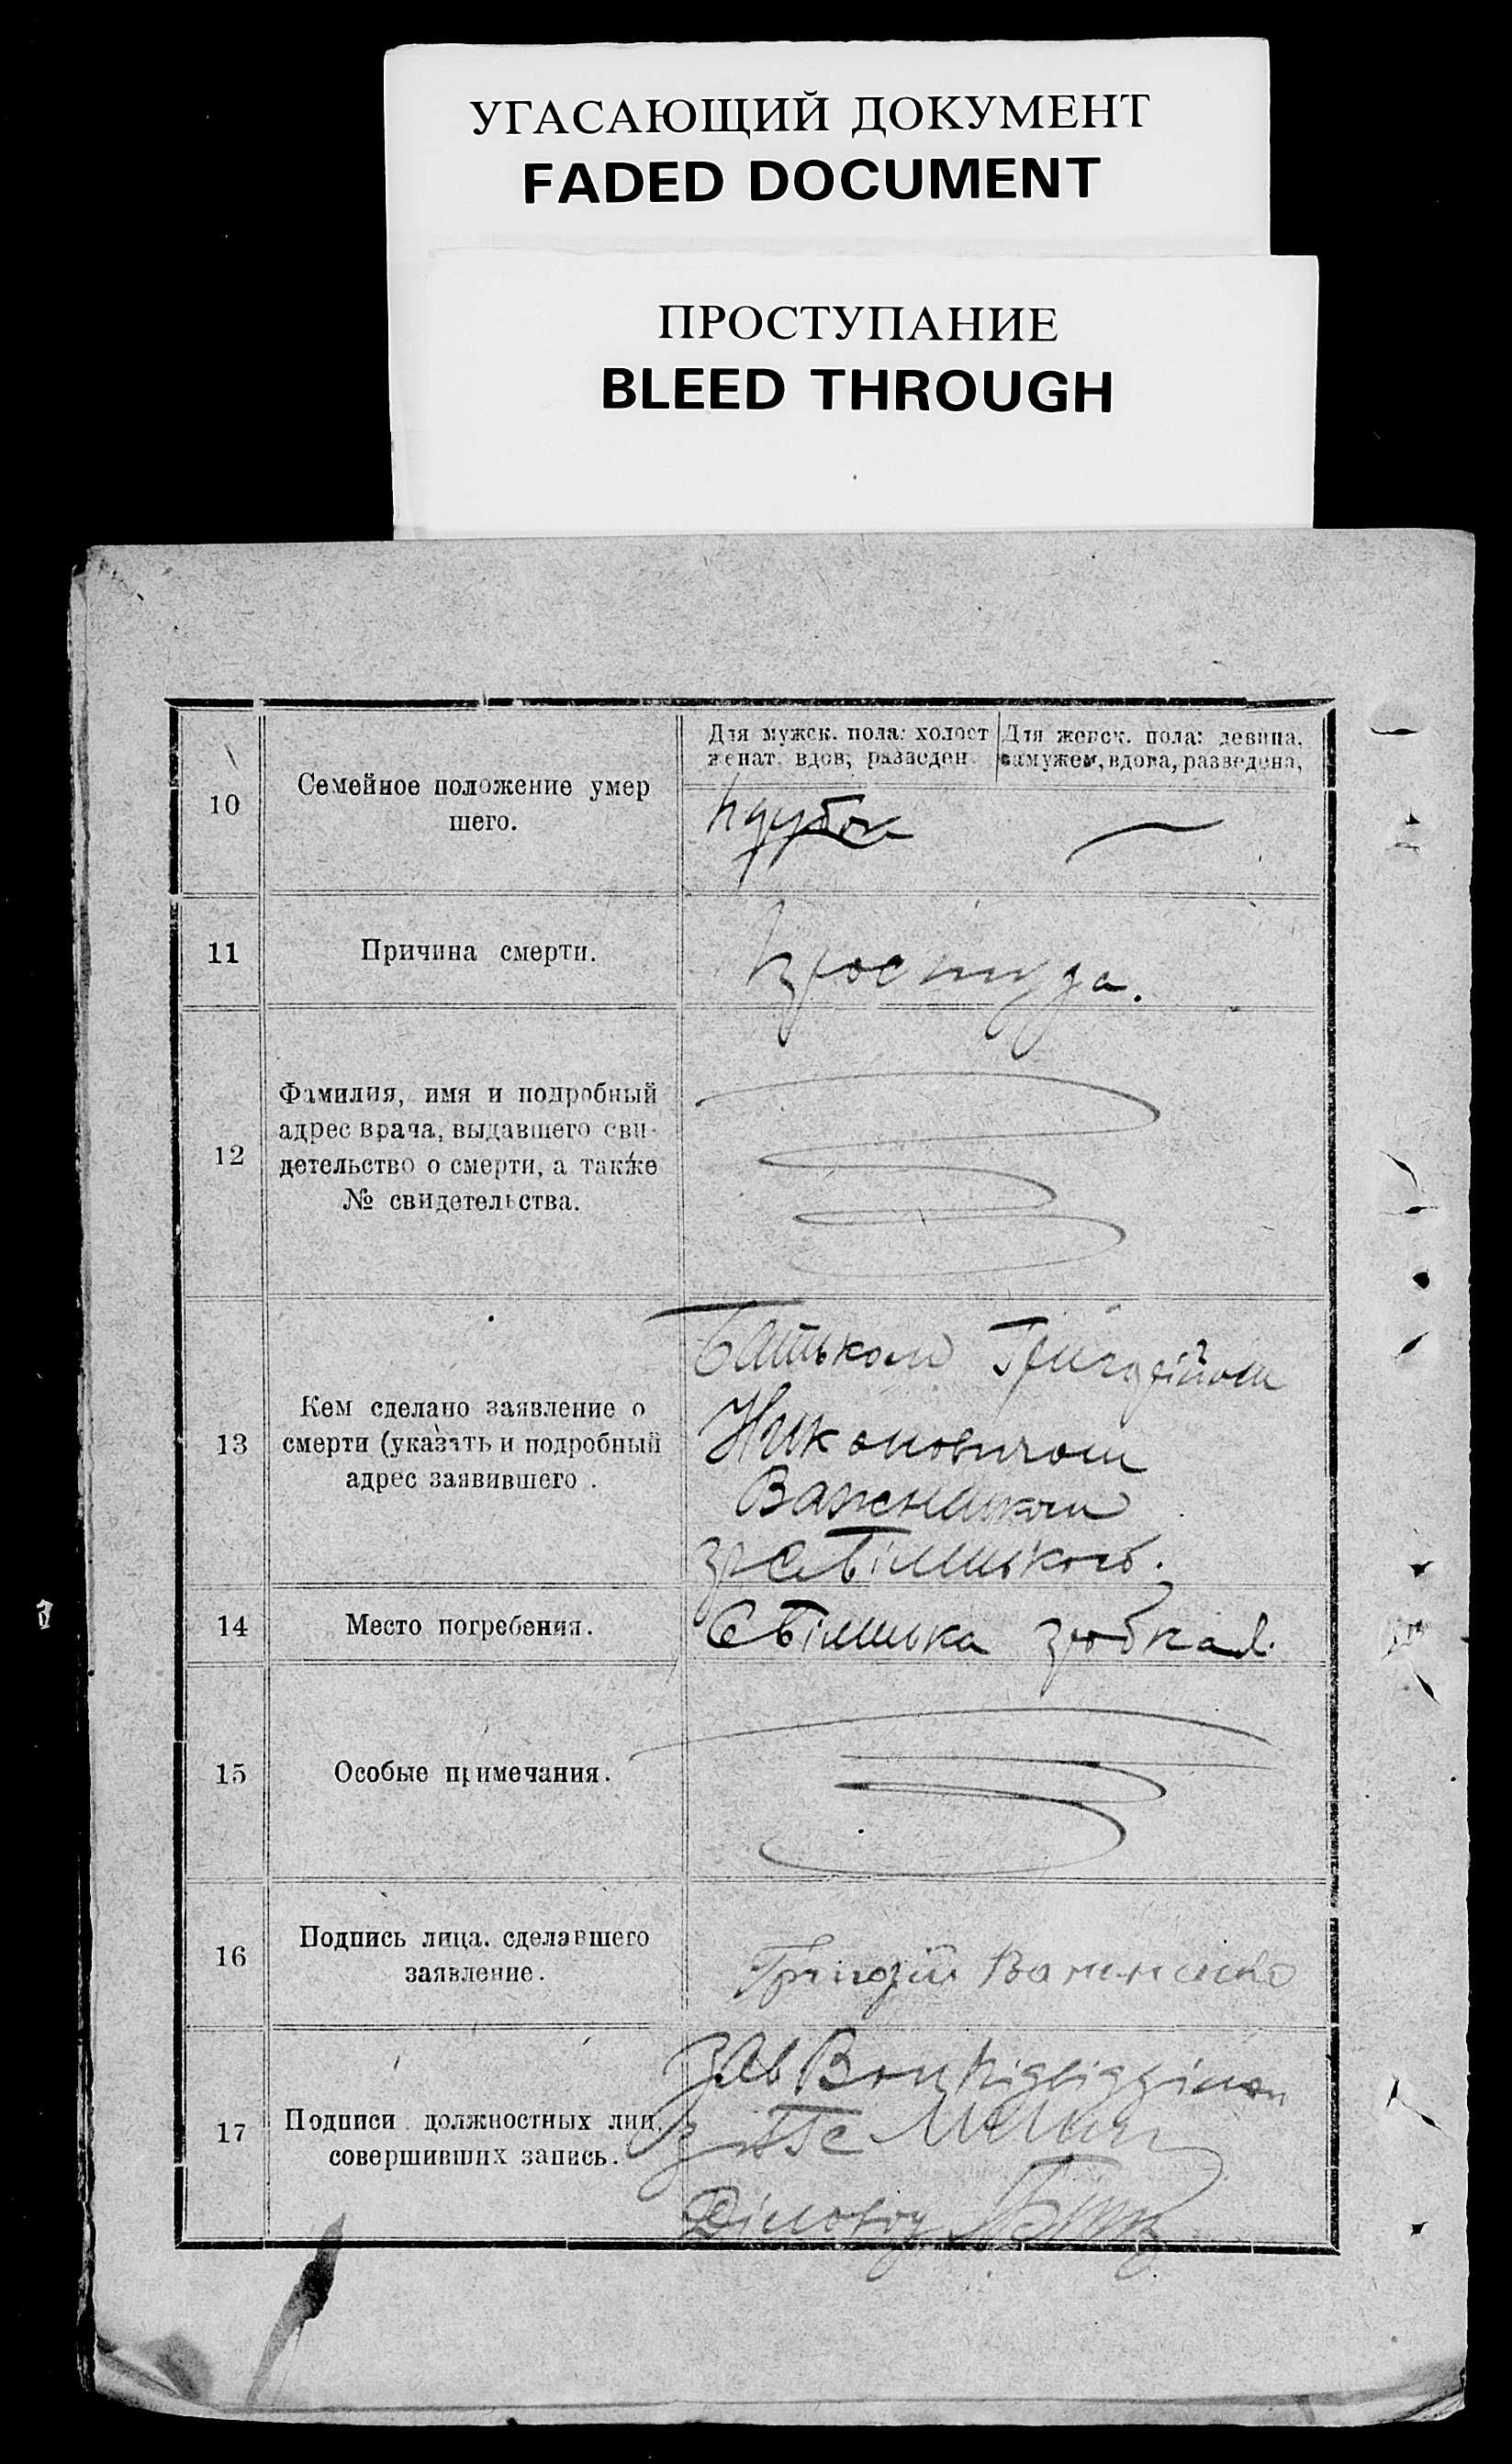 УГАСАЮЩИЙ ДОКУМЕНТ
FADED DOCUMENT
ПРОСТУПАНИЕ
BLEED THROUGH
Для мужск. пола: холост
женат, вдов, разведен
Для женск. пола: девица,
замужем, вдова, разведена,
10
Семейное положение умер
шего.
11
Причина смерти.
простуда.
12
Фамилия, имя и подробный
адрес врача, выдавшего сви-
детельство о смерти, а также
№ свидетельства.
13
Кем сделано заявление о
смерти (указать и подробный
адрес заявившего .
Батьком Григорійом
Никоновичом
14
Место погребения.
15
Особые примечания.
16
Подпись лица. сделавшего
заявление.
Григорій
17
Подписи должностных лиц,
совершивших запись.
Зав
Діловод